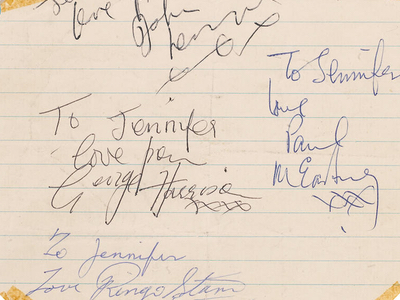 love John
Lennon
To Jennifer
love from
George Harrison
xxxx
To Jennifer
love
Paul
McCartney
xxx
To Jennifer
Love Ringo Starr